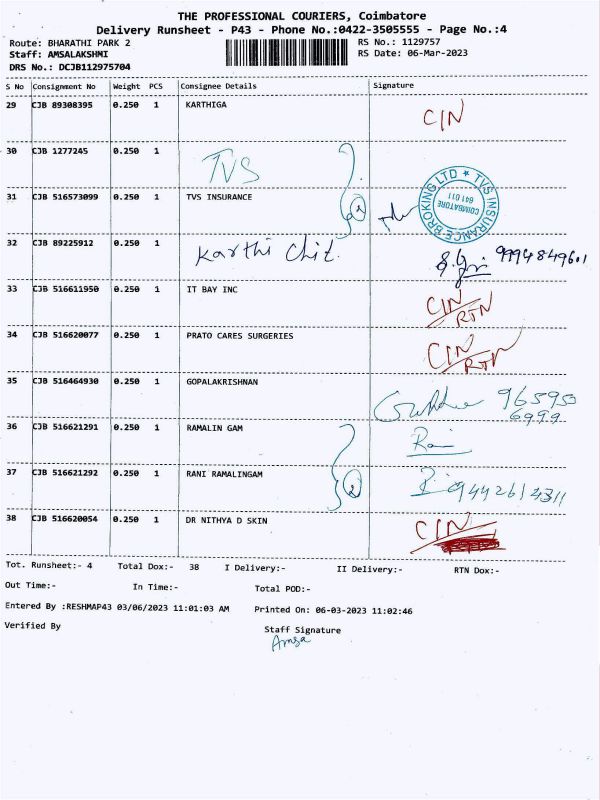 THE PROFESSIONAL COURIERS, Coimbatore
Delivery Runsheet - P43 - Phone No.:0422-3505555 - Page No.:4
Route: BHARATHI PARK 2 RS No.: 1129757
Staff: AMSALAKSHMI RS Date: 06-Mar-2023
DRS No.: DCJB112975704
S No Consignment No Weight PCS Consignee Details Signature
29 CJB 89308395 0.250 1 KARTHIGA CIN
30 CJB 1277245 0.250 1 TVS
31 CJB 516573099 0.250 1 TVS INSURANCE 2 TVS INSURANCE BROKING LTD COIMBATORE 641 011
32 CJB 89225912 0.250 1 Karthi Chit. 9994849601
33 CJB 516611950 0.250 1 IT BAY INC CIN RTN
34 CJB 516620077 0.250 1 PRATO CARES SURGERIES CIN RTN
35 CJB 516464930 0.250 1 GOPALAKRISHNAN 96595 06999
36 CJB 516621291 0.250 1 RAMALIN GAM
37 CJB 516621292 0.250 1 RANI RAMALINGAM 2 9442614311
38 CJB 516620054 0.250 1 DR NITHYA D SKIN CIN
Tot. Runsheet:- 4 Total Dox:- 38 I Delivery:- II Delivery:- RTN Dox:-
Out Time:- In Time:- Total POD:-
Entered By :RESHMAP43 03/06/2023 11:01:03 AM Printed On: 06-03-2023 11:02:46
Verified By Staff Signature
Amsa